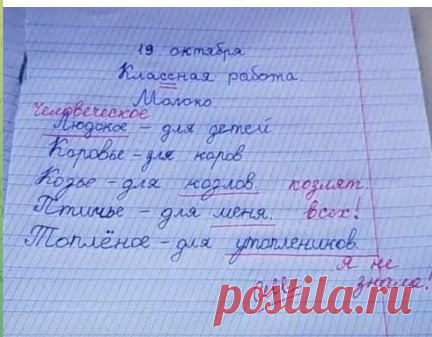 19 октября
Классная работа.
Молоко
Человеческое
Людское – для детей
Коровье – для коров
Козье – для козлов. козлят.
Птичье – для меня. всех!
Топлёное – для утоплеников.
Я не
знала!
postila.ru